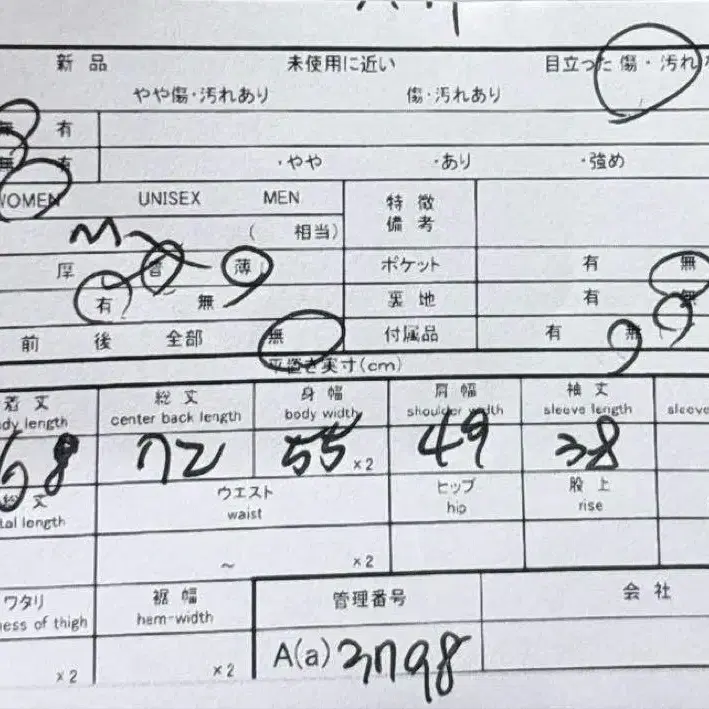 新品 未使用に近い 目立った傷・汚れ
やや傷・汚れあり 傷・汚れあり
無 有
無 有 ・やや ・あり ・強め
WOMEN UNISEX MEN 特徴
備考
M ( 相当)
厚 普 薄 ポケット 有 無
有 無 裏地 有 無
前 後 全部 無 付属品 有 無
平置き実寸(cm)
着丈 総丈 身幅 肩幅 袖丈
dy length center back length body width shoulder width sleeve length sleeve
68 72 55 ×2 49 38
総丈 ウエスト ヒップ 股上
tal length waist hip rise
~ ×2
ワタリ 裾幅 管理番号 会社
ess of thigh hem-width
×2 ×2 A(a) 3798